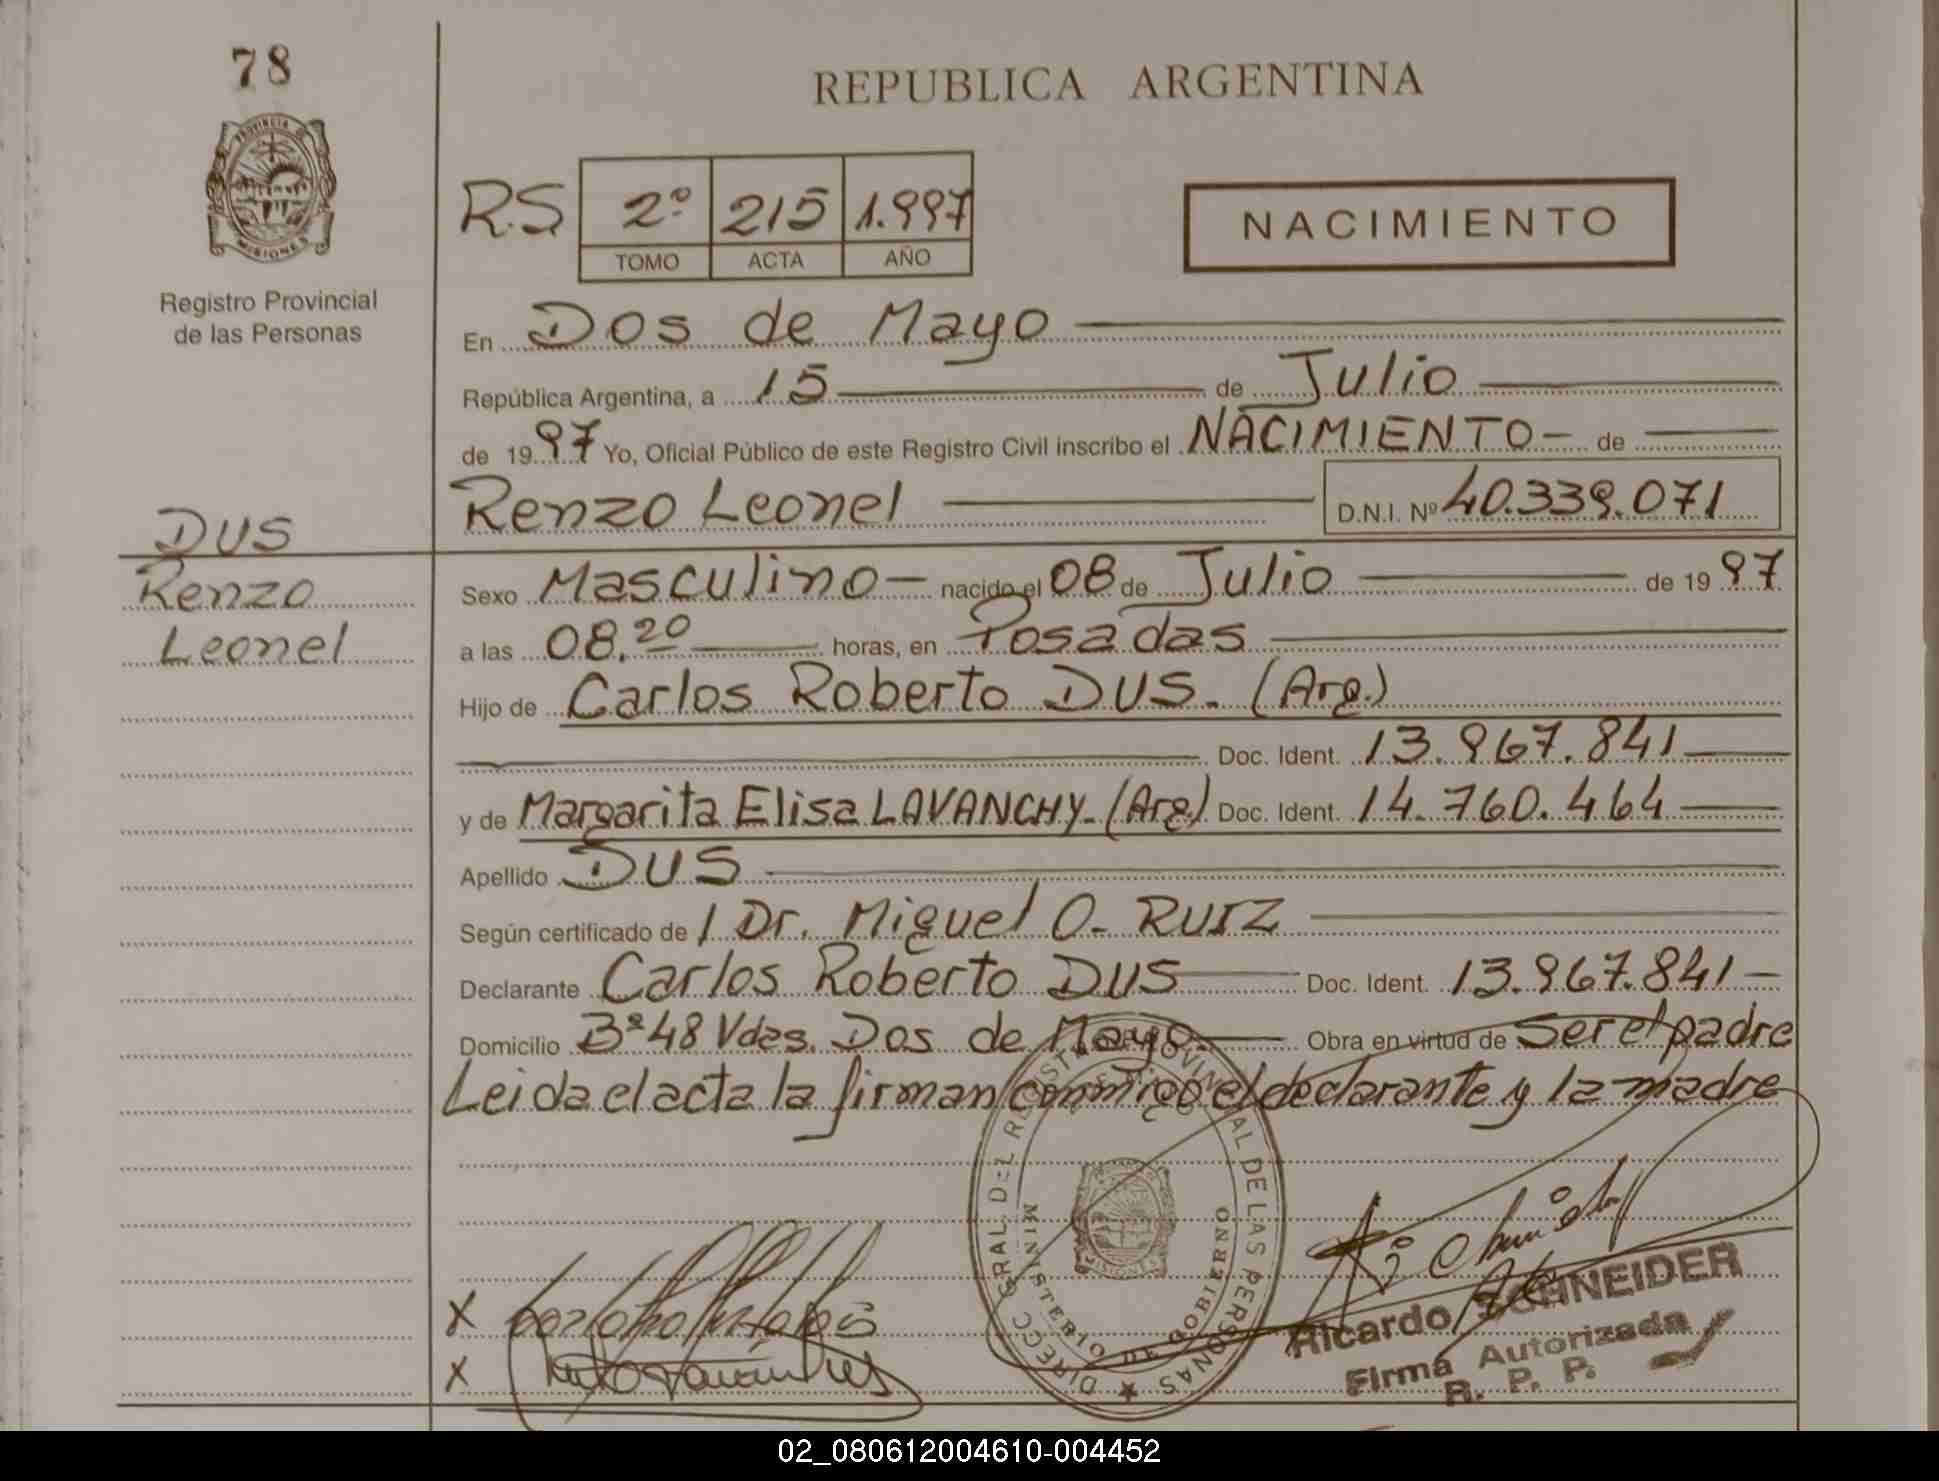 78
REPUBLICA ARGENTINA
PROVINCIA DE
MISIONES
Registro Provincial
de las Personas
R.S 2º 215 1.997
TOMO ACTA AÑO
NACIMIENTO
En Dos de Mayo
República Argentina, a 15 de Julio
de 1997 Yo, Oficial Público de este Registro Civil inscribo el NACIMIENTO- de
Renzo Leonel D.N.I. Nº 40.339.071
DUS
Renzo
Leonel
Sexo Masculino- nacido el 08 de Julio de 1997
a las 08.20 horas, en Posadas
Hijo de Carlos Roberto DUS. (Arg.)
Doc. Ident. 13.967.841
y de Margarita Elisa LAVANCHY. (Arg) Doc. Ident. 14.760.464
Apellido DUS
Según certificado de / Dr. Miguel O. RUIZ
Declarante Carlos Roberto DUS Doc. Ident. 13.967.841-
Domicilio Bº 48 Vdas. Dos de Mayo Obra en virtud de Ser el padre
Leida el acta la firman conmigo el declarante y la madre
DIRECC GRAL DEL REGISTRO PROVINCIAL DE LAS PERSONAS
MINISTERIO DE GOBIERNO
MISIONES
Ricardo SCHNEIDER
Firma Autorizada
R. P. P.
X
X
02_080612004610-004452